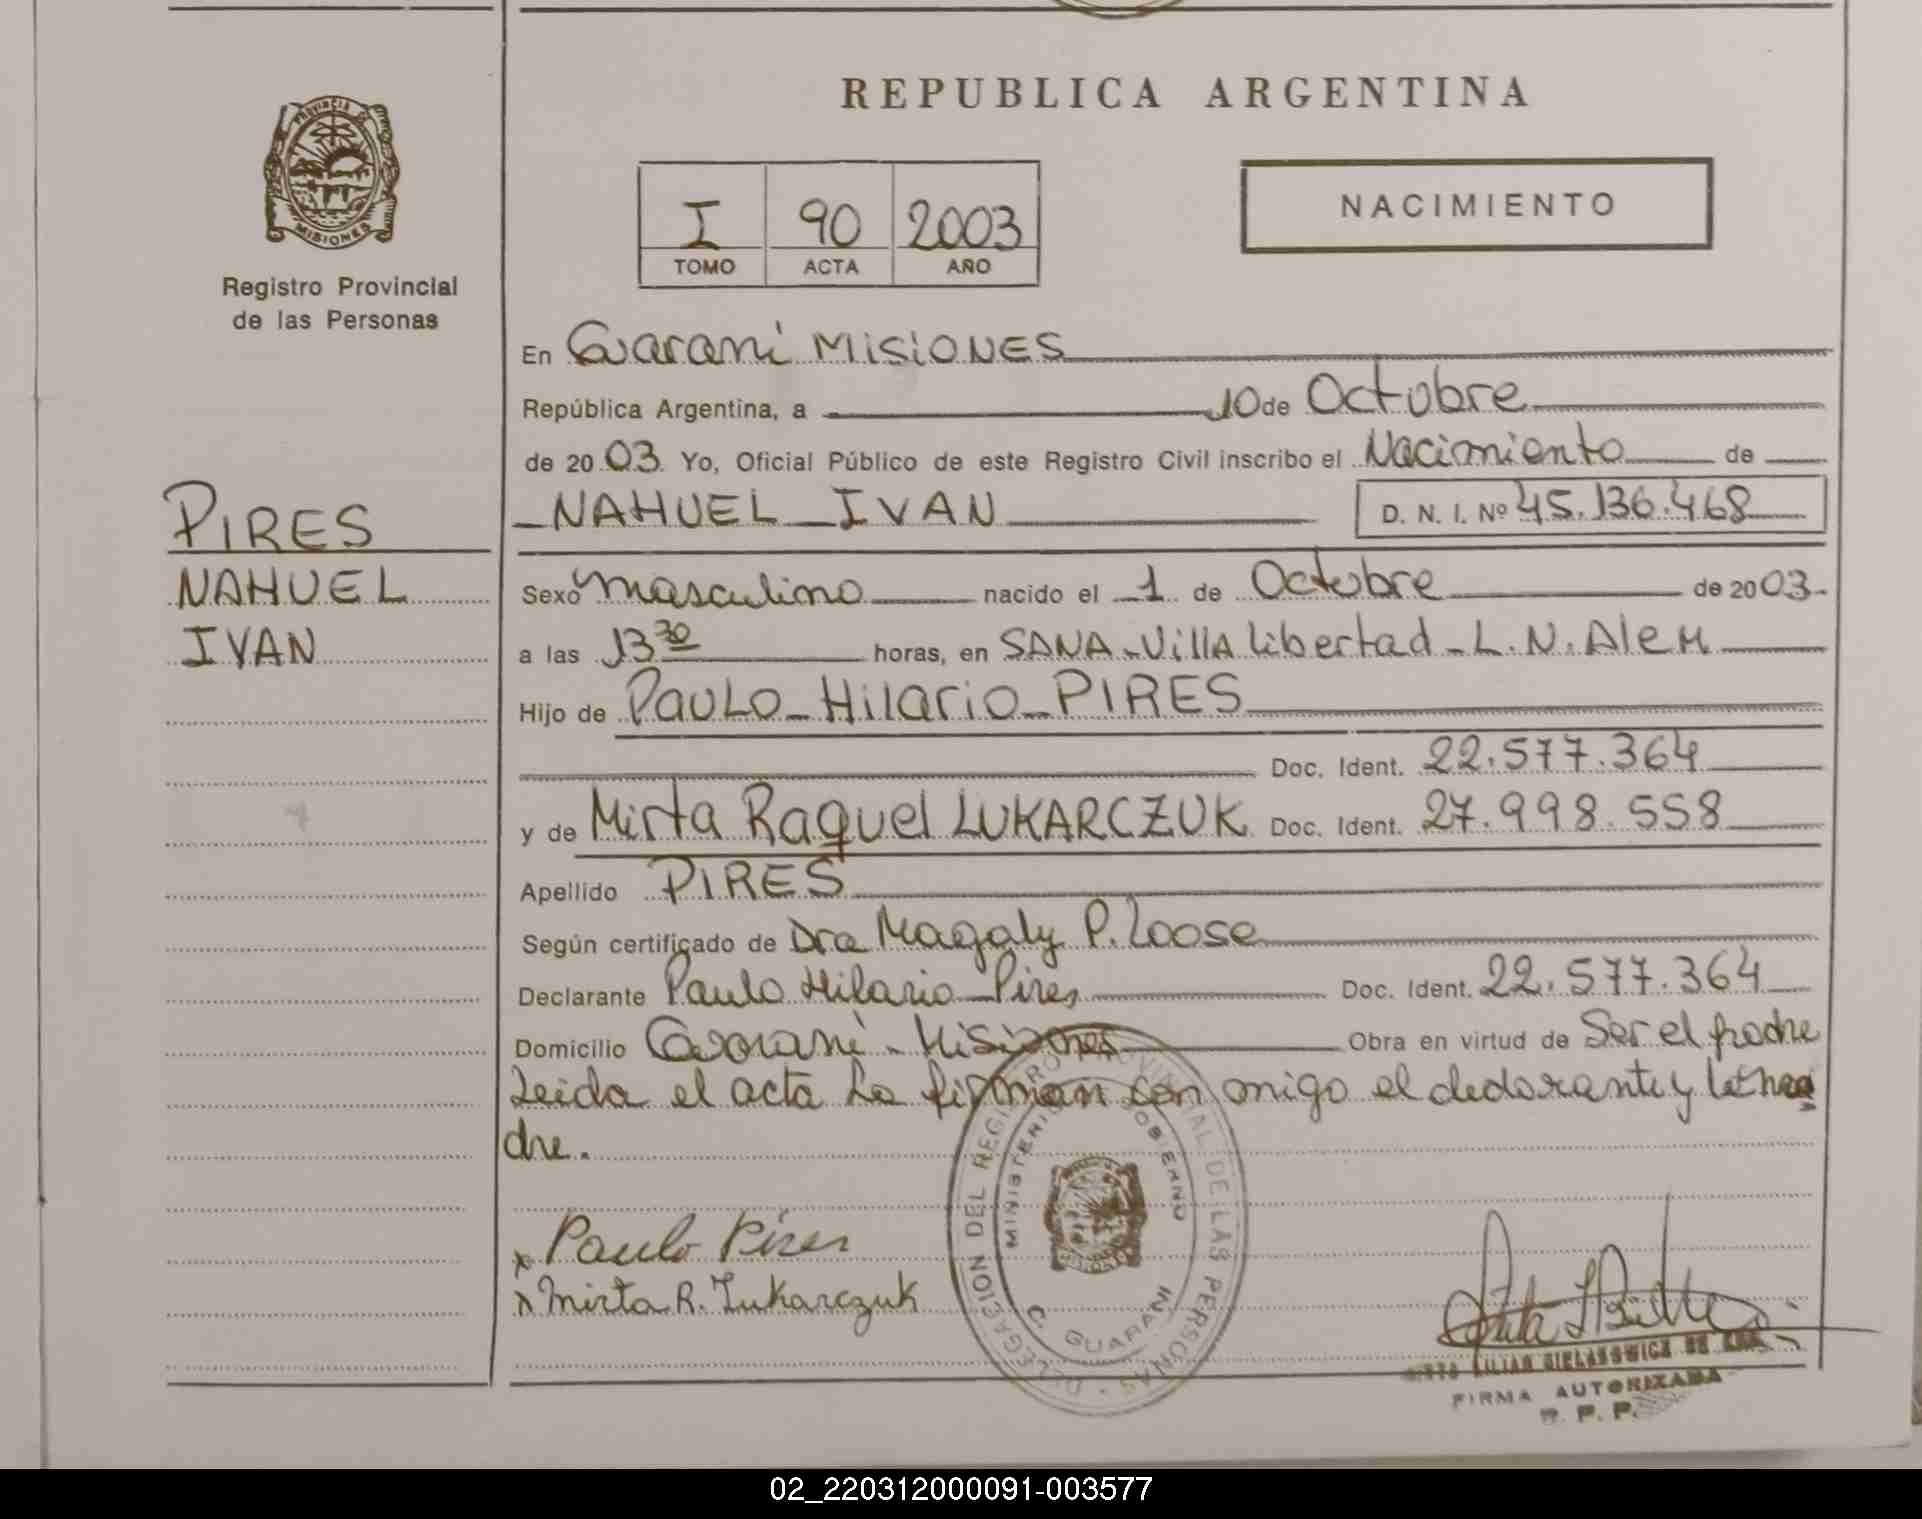 REPUBLICA ARGENTINA
PROVINCIA DE
MISIONES
Registro Provincial
de las Personas
I 90 2003
TOMO ACTA AÑO
NACIMIENTO
En Guarani MISIONES
República Argentina, a 10 de Octubre
de 2003 Yo, Oficial Público de este Registro Civil inscribo el Nacimiento de
NAHUEL IVAN D. N. I. Nº 45.136.468
PIRES
NAHUEL
IVAN
Sexo masculino nacido el 1 de Octubre de 2003
a las 13 30 horas, en SANA - Villa Libertad - L. N. Alem
Hijo de Paulo Hilario PIRES
Doc. Ident. 22.577.364
y de Mirta Raquel LUKARCZUK Doc. Ident. 27.998.558
Apellido PIRES
Según certificado de Dra Magaly P. Loose
Declarante Paulo Hilario Pires Doc. Ident. 22.577.364
Domicilio Guarani - Misiones Obra en virtud de Ser el padre
Leida el acta La firman con migo el declarante y la ma
dre.
DELEGACION DEL REGISTRO PROVINCIAL DE LAS PERSONAS
MINISTERIO GOBIERNO
C. GUARANI
x Paulo Pires
x Mirta R. Lukarczuk
LILIAN
FIRMA AUTORIZADA
R. P. P.
02_220312000091-003577